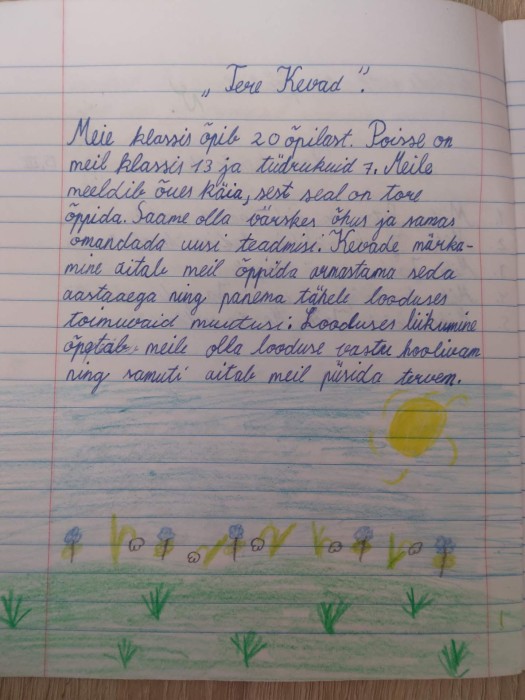 „Tere Kevad".
Meie klassis õpib 20 õpilast. Poisse on
meil klassis 13 ja tüdrukuid 7. Meile
meeldib õues käia, sest seal on tore
õppida. Saame olla värskes õhus ja samas
omandada uusi teadmisi. Kevade märka-
mine aitab meil õppida armastama seda
aastaaega ning panema tähele looduses
toimuvaid muutusi. Looduses liikumine
õpetab meile olla looduse vastu hoolivam
ning samuti aitab meil püsida terven.